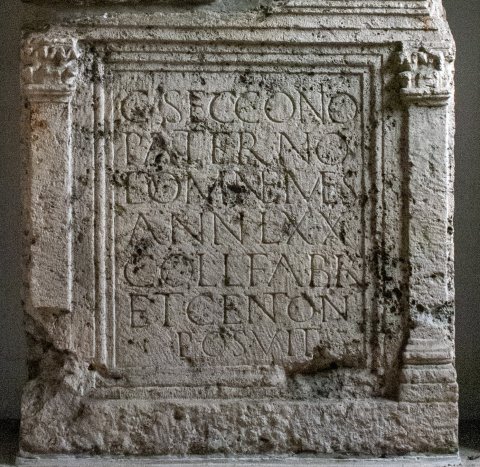 C SECCONO
PATERNO
DOMN EMES
ANN LXX
COLL FABR
ET CENTON
POSVIT